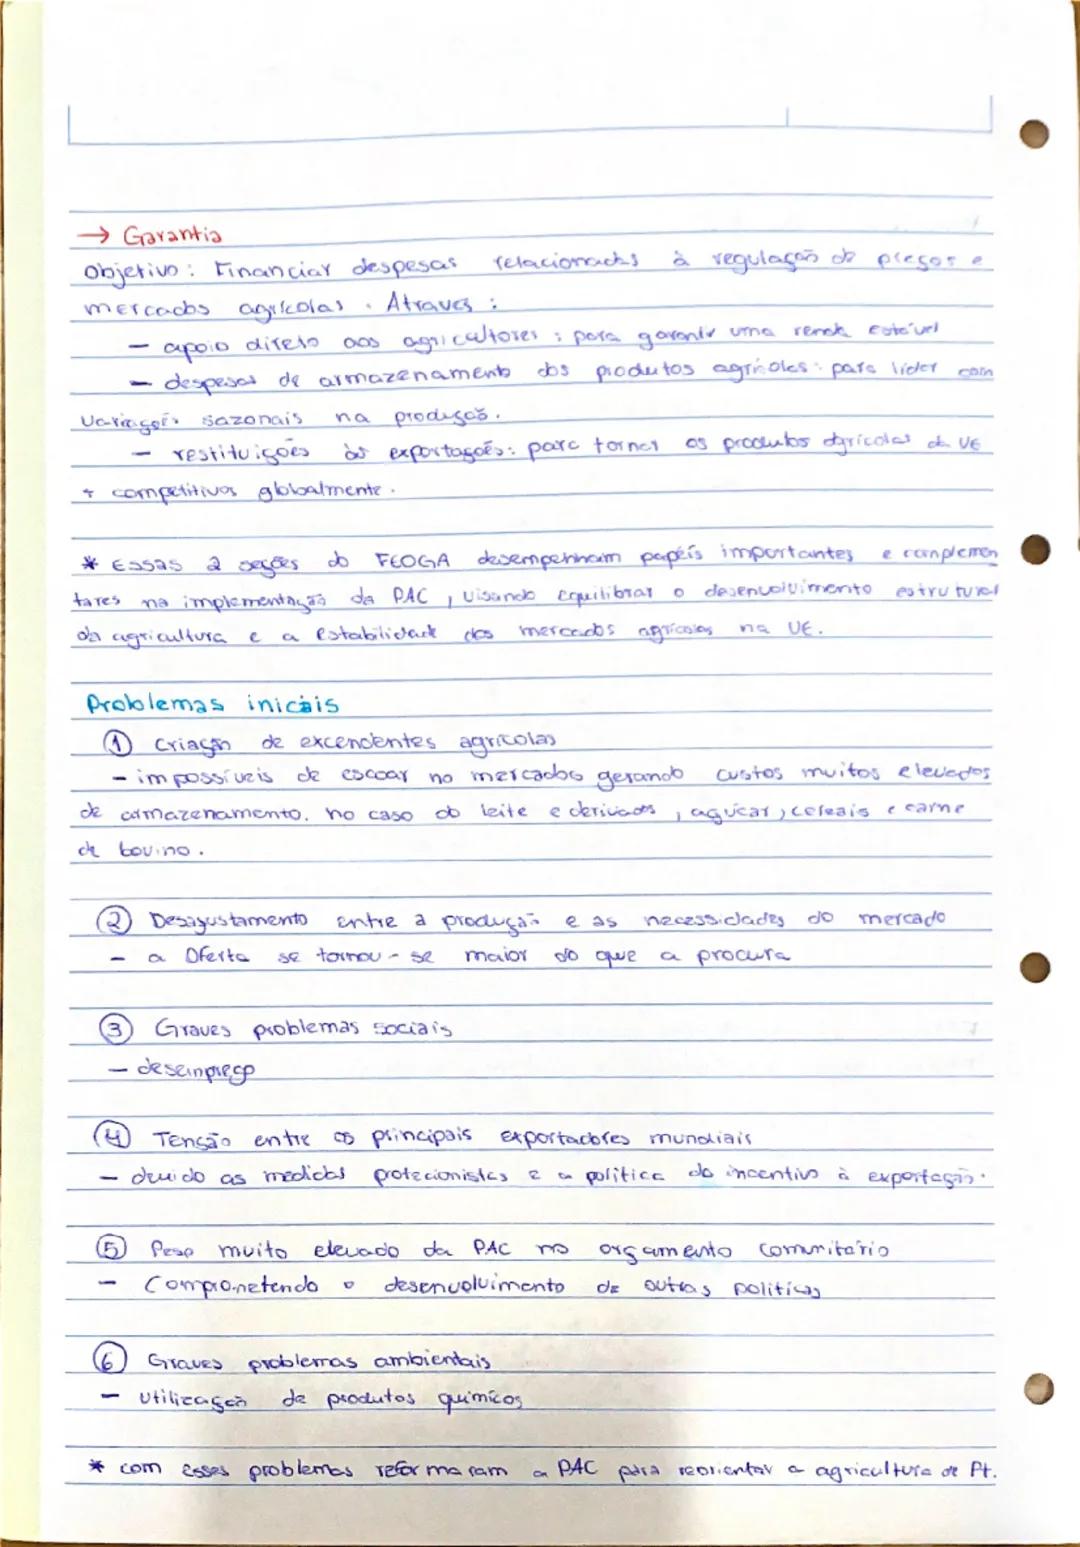 → Garantia
Objetivo: Financiar despesas relacionadas à regulação de preços e
mercados agrícolas. Através:
- apoio direto aos agricultores: para garantir uma renda estável
- despesas de armazenamento dos produtos agrícolas: para lider com
variações sazonais na produção.
- restituições às exportações: para tornar os produtos agrícolas da UE
+ competitivos globalmente.
* Essas 2 seções do FEOGA desempenham papéis importantes e complemen
tares na implementação da PAC, visando equilibrar o desenvolvimento estrutural
da agricultura e a estabilidade dos mercados agrícolas na UE.
Problemas iniciais
① Criação de excendentes agrícolas
- impossíveis de escoar no mercados gerando custos muitos elevados
de armazenamento. no caso do leite e derivados, açúcar, cereais e carne
de bovino.
② Desajustamento entre a produção e as necessidades do mercado
- a Oferta se tornou-se maior do que a procura
③ Graves problemas sociais
- desemprego
④ Tensão entre os principais exportadores mundiais
- devido as medidas protecionistas e a política do incentivo à exportação.
⑤ Peso muito elevado da PAC no orçamento comunitário
- Comprometendo o desenvolvimento de outras políticas
⑥ Graves problemas ambientais
- Utilização de produtos químicos
* com esses problemas reformaram a PAC para reorientar a agricultura de Pt.